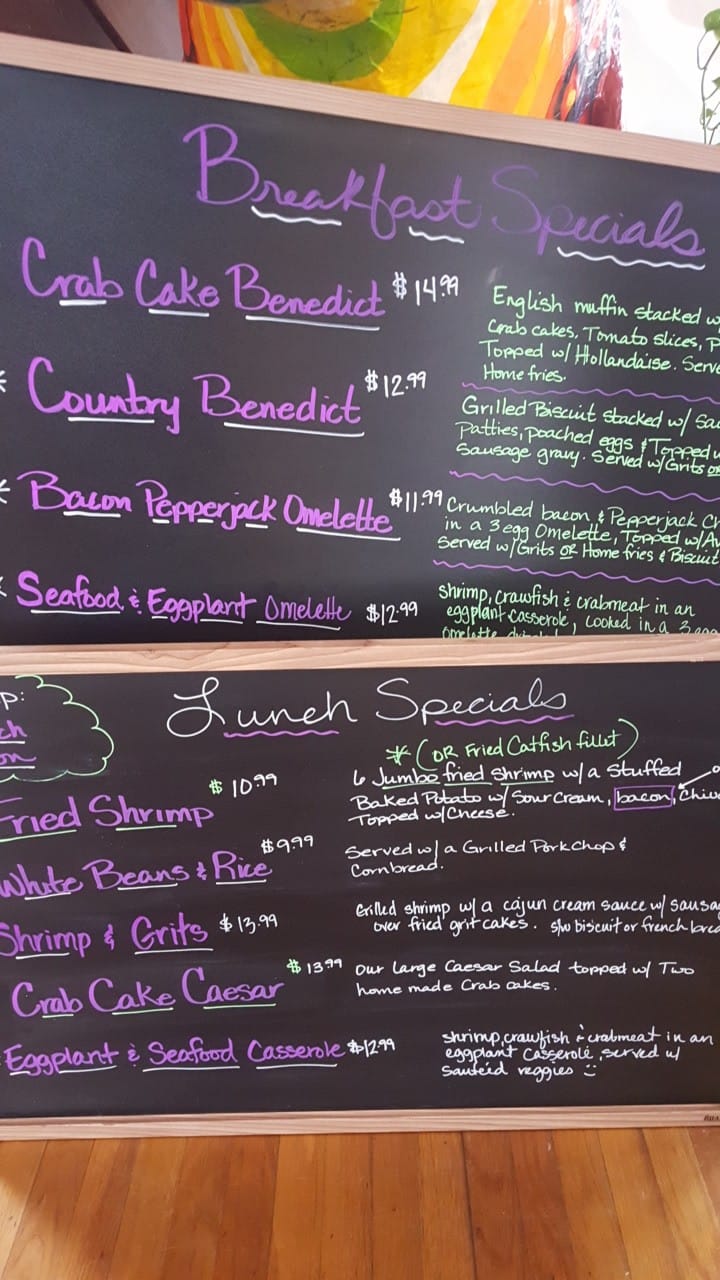 Breakfast Specials
Crab Cake Benedict $14.99
English muffin stacked w
Crab cakes, Tomato slices, P
Topped w/ Hollandaise. Serve
Home fries.
Country Benedict $12.99
Grilled Biscuit stacked w/ Sau
Patties, poached eggs & Topped w
Sausage gravy. Served w/Grits or
Bacon Pepperjack Omelette $11.99
Crumbled bacon & Pepperjack Ch
in a 3 egg Omelette, Topped w/Av
Served w/Grits OR Home fries & Biscuit
Seafood & Eggplant Omelette $12.99
shrimp, crawfish & crabmeat in an
eggplant casserole, cooked in a 3 egg
omelette
P:
ch
on
Lunch Specials
* (OR Fried Catfish fillet)
Fried Shrimp $10.99
6 Jumbo fried shrimp w/a Stuffed
Baked Potato w/ Sour Cream, bacon, Chive
Topped w/Cheese.
White Beans & Rice $9.99
Served w/ a Grilled Pork Chop &
Cornbread.
Shrimp & Grits $13.99
Grilled shrimp w/ a cajun cream sauce w/ sausa
over fried grit cakes. s/w biscuit or french brea
Crab Cake Caesar $13.99
Our Large Caesar Salad topped w/ Two
home made Crab cakes.
Eggplant & Seafood Casserole $12.99
shrimp, crawfish & crabmeat in an
eggplant casserole, served w/
sauteéd veggies